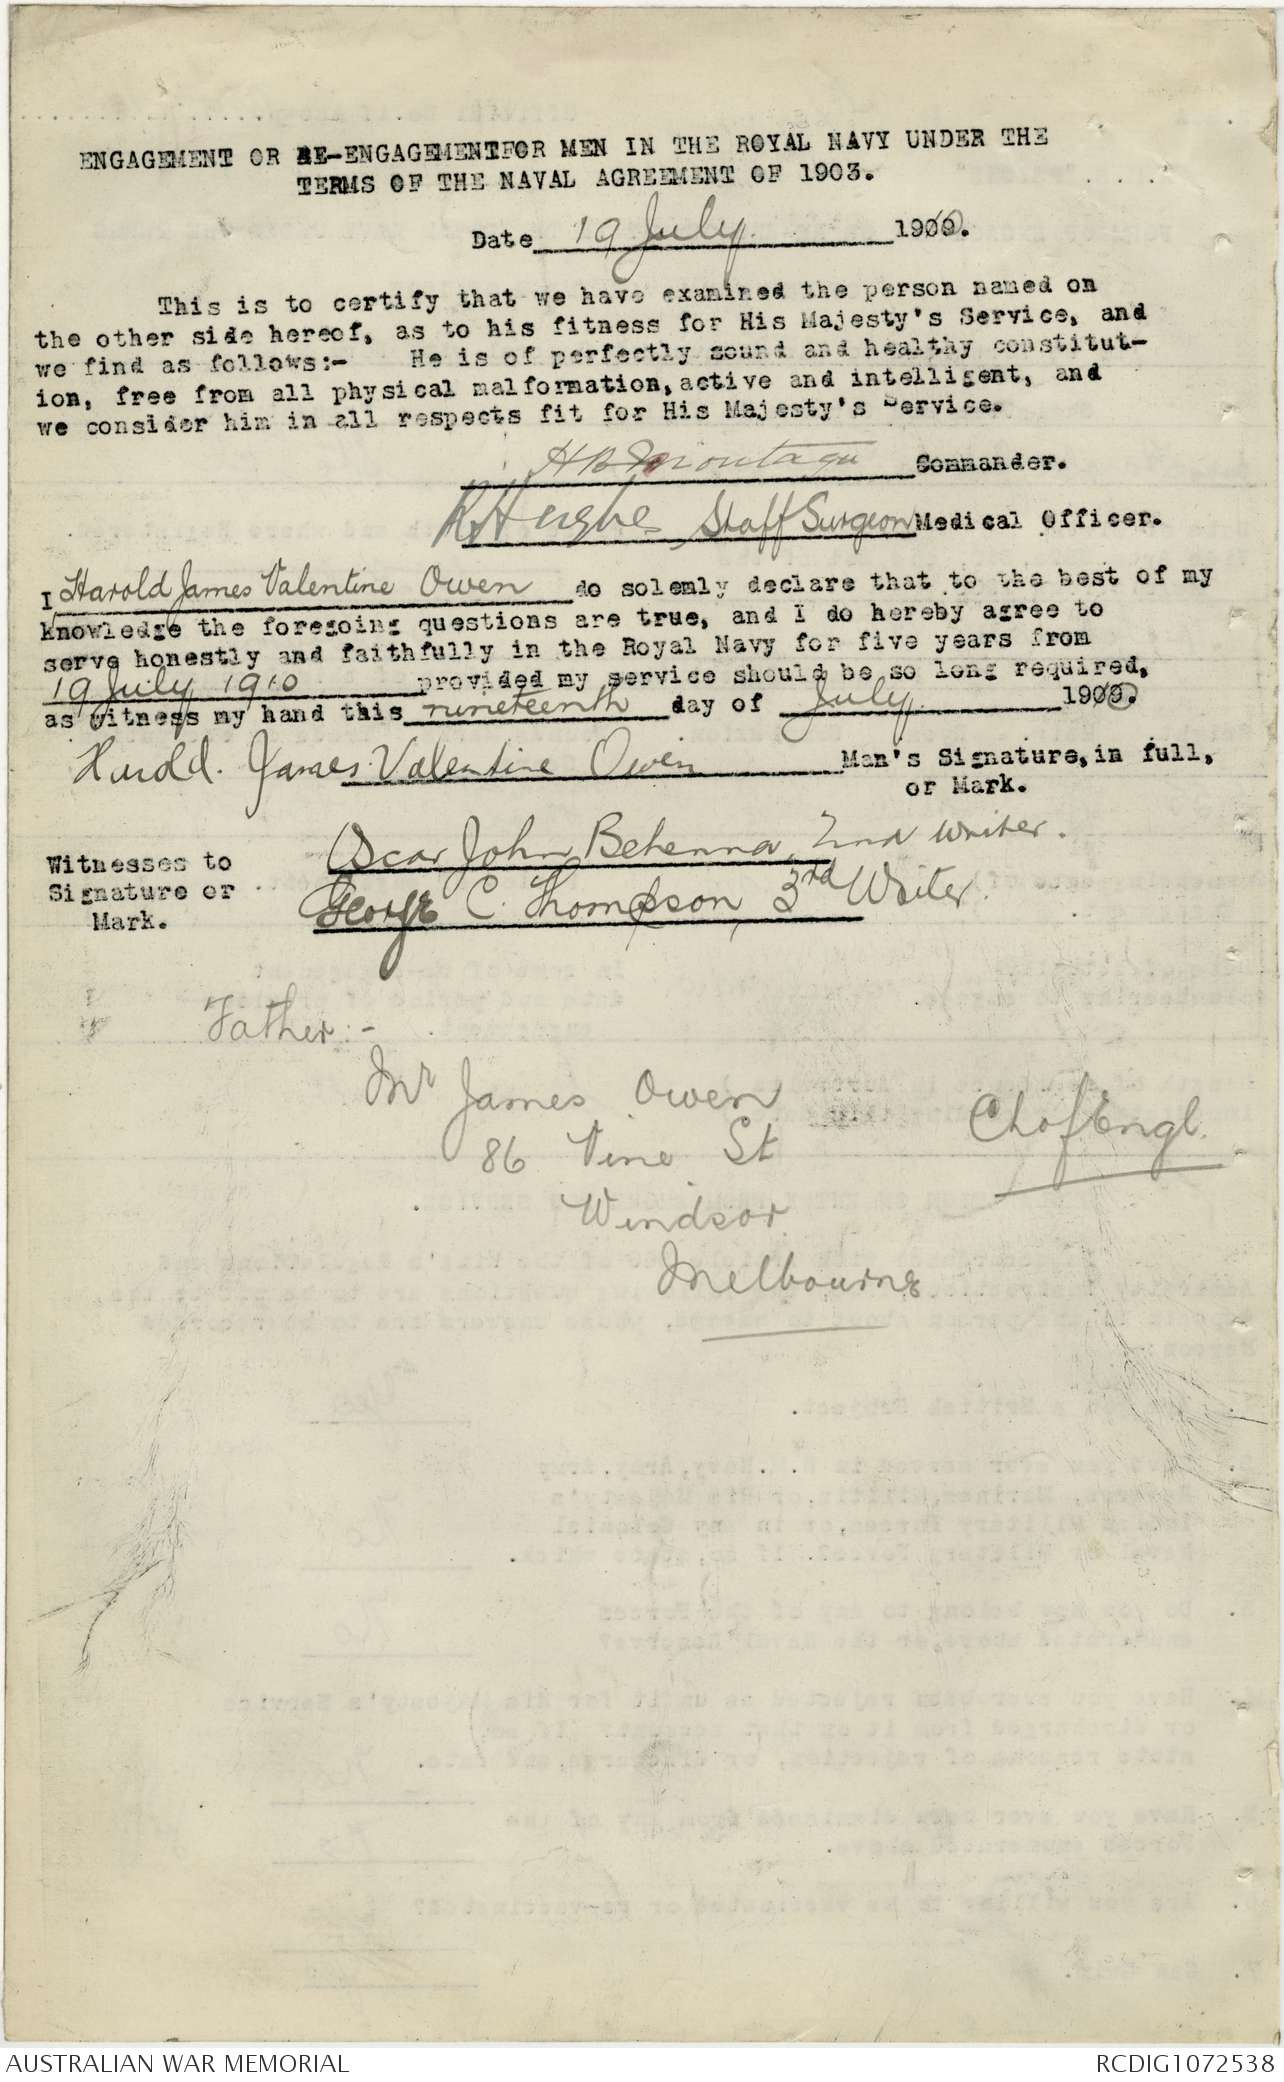 ENGAGEMENT OR RE-ENGAGEMENTFOR MEN IN THE ROYAL NAVY UNDER THE
TERMS OF THE NAVAL AGREEMENT OF 1903.
Date 19 July 1910.
This is to certify that we have examined the person named on
the other side hereof, as to his fitness for His Majesty's Service, and
we find as follows:- He is of perfectly sound and healthy constitut-
ion, free from all physical malformation, active and intelligent, and
we consider him in all respects fit for His Majesty's Service.
H B Montagu Commander.
R Hughes Staff Surgeon Medical Officer.
I Harold James Valentine Owen do solemly declare that to the best of my
knowledge the foregoing questions are true, and I do hereby agree to
serve honestly and faithfully in the Royal Navy for five years from
19 July 1910 provided my service should be so long required,
as witness my hand this nineteenth day of July 1910.
Harold James Valentine Owen Man's Signature, in full,
or Mark.
Witnesses to
Signature or
Mark.
Oscar John Behenna, 2nd Writer.
George C. Thompson, 3rd Writer.
Father:-
Mr James Owen
86 Vine St
Windsor
Melbourne
Ch of Engl.
AUSTRALIAN WAR MEMORIAL RCDIG1072538